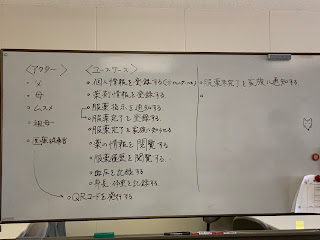 〈アクター〉
・父
・母
・ムスメ
・祖母
・医療従事者
〈ユースケース〉
・個人情報を登録する
・薬剤情報を登録する
・服薬指示を通知する
・服薬完了を登録する
・服薬完了を家族に知らせる
・薬の情報を閲覧する
・服薬履歴を閲覧する
・血圧を記録する
・身長 体重を記録する
・QRコードを発行する
・服薬未完了を家族に通知する